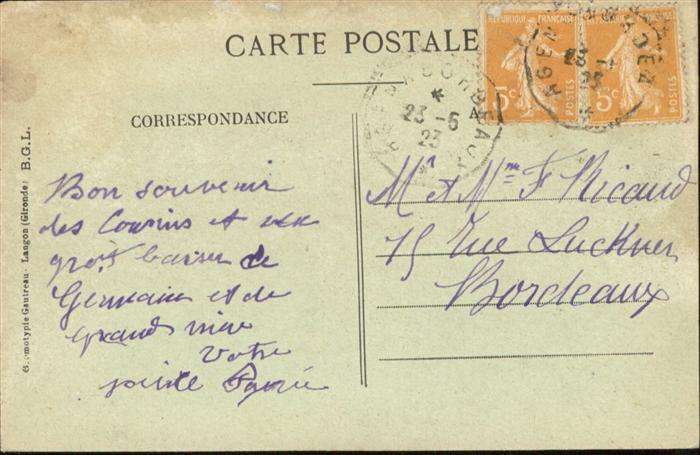 CARTE POSTALE
CORRESPONDANCE
Bon souvenir
des Cousins et un
gros baiser de
Germaine et de
grand mère
Votre
petite
Mr et Mme F Ricaud
75 rue Luckner
Bordeaux
RÉPUBLIQUE FRANÇAISE
5c POSTES
5c POSTES
AGEN A BORDEAUX
23-5
23
motypie Gautreau - Langon (Gironde) B.G.L.